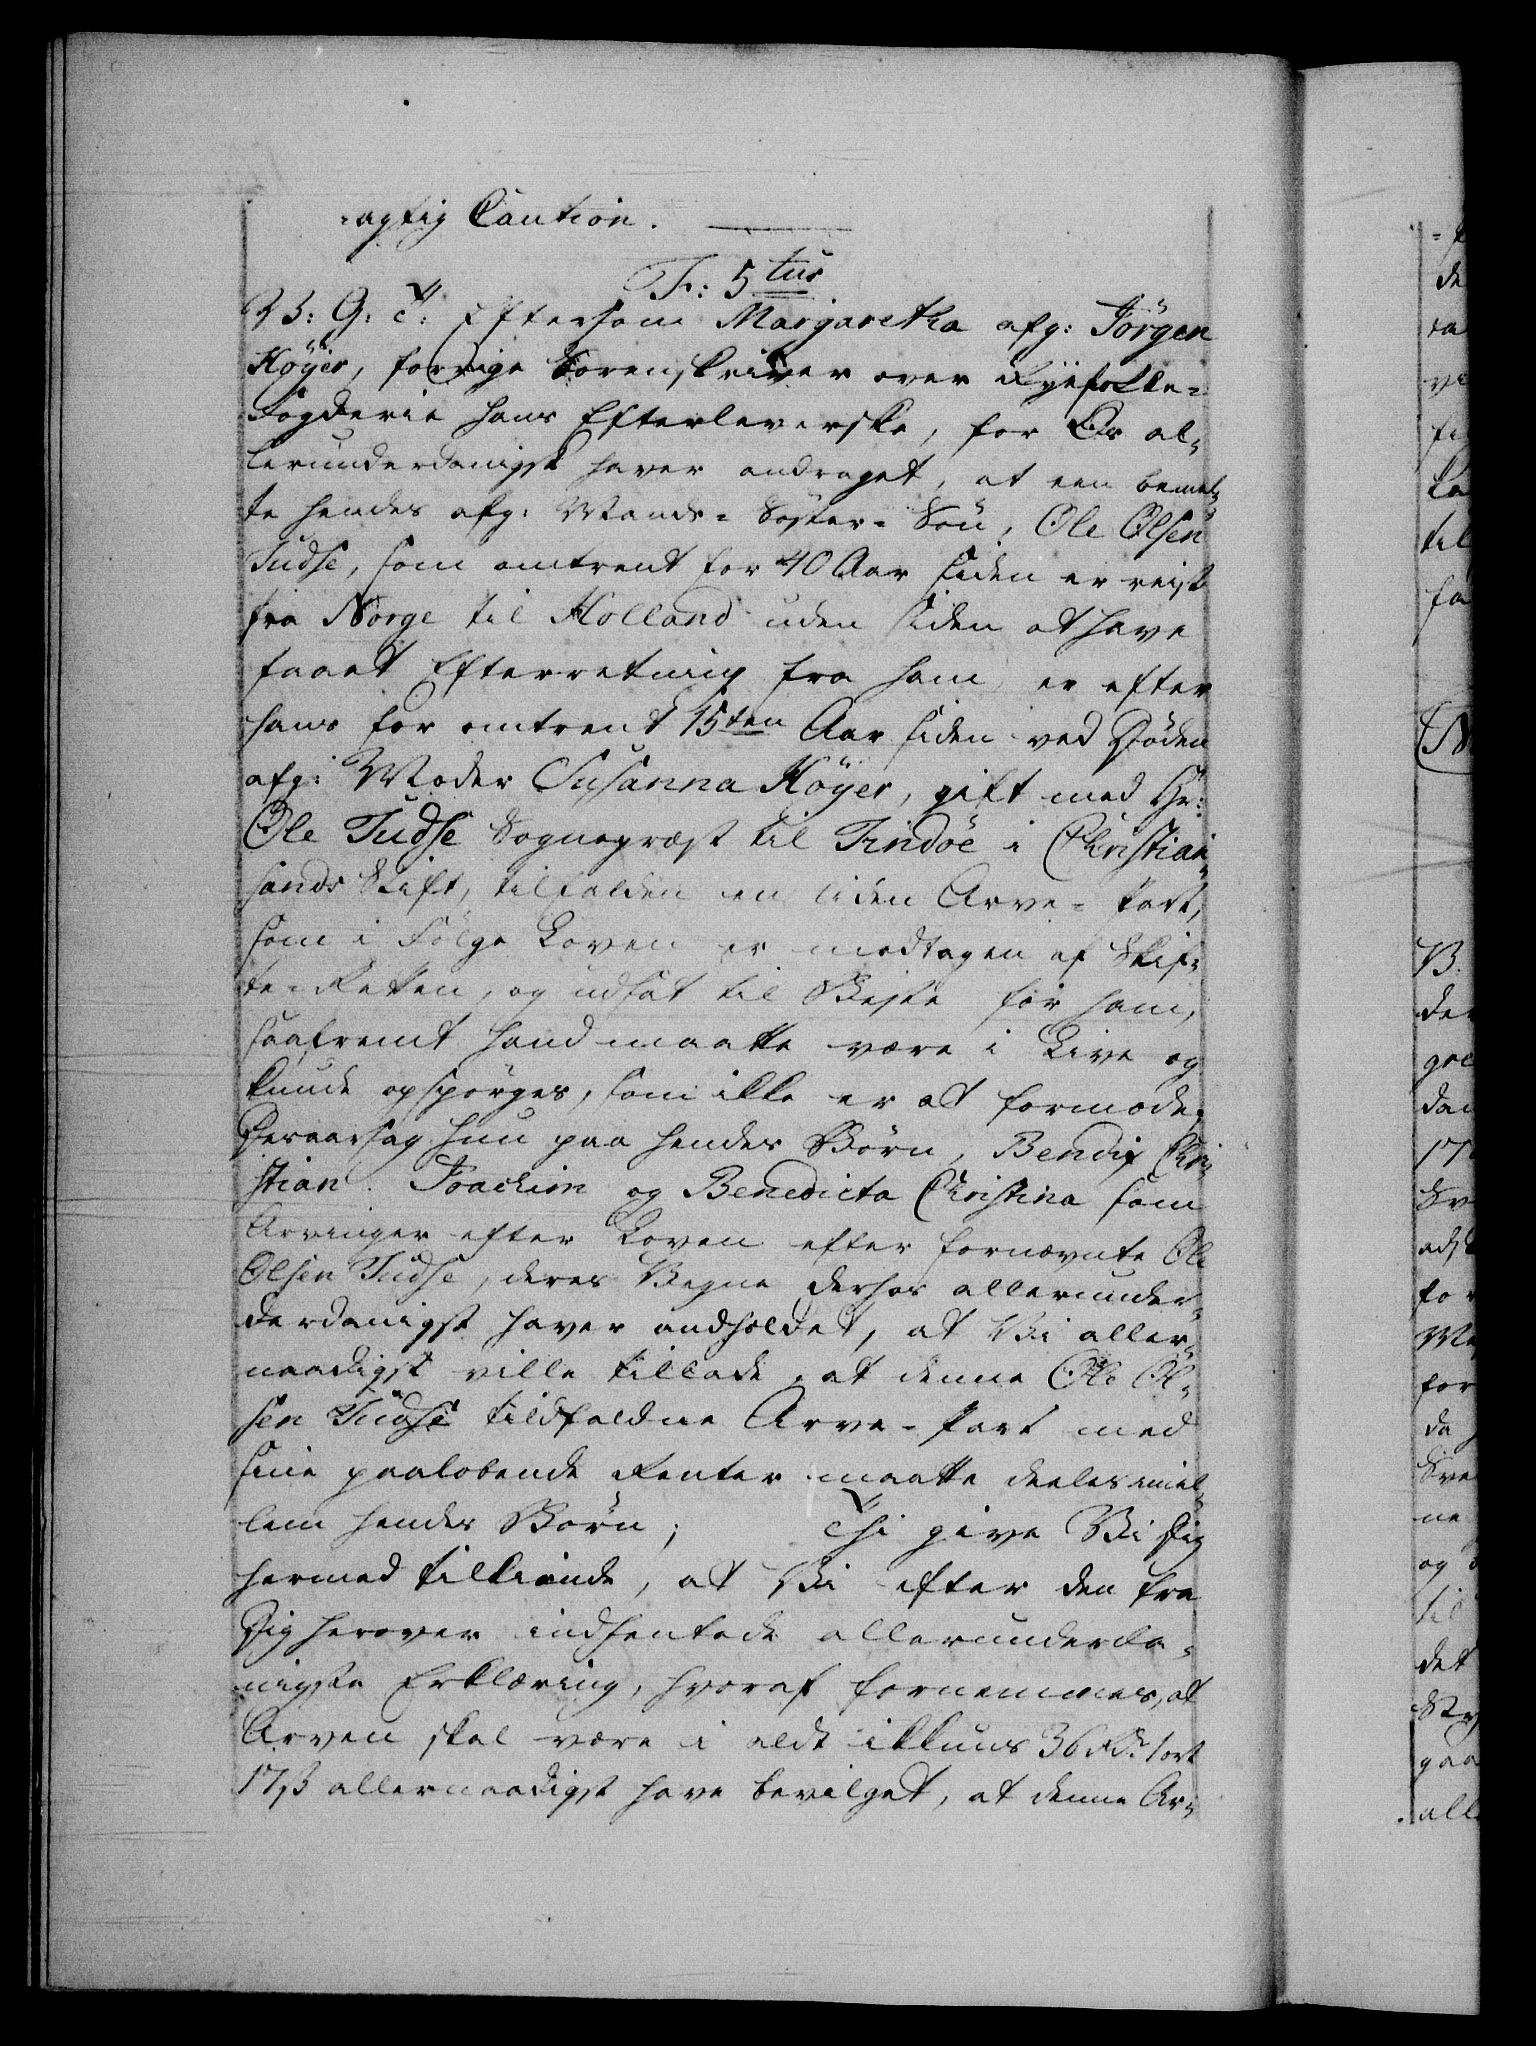 -agtig Caution.
F: 5tus
V. G. T: Eftersom Margaretha afg: Jörgen
Höyer, forrige Sorenskriver over Ryefolke-
Fogderie hans Efterleverske, for Os al-
lerunderdanigst haver andraget, at een bemel-
te hendes afg: Mands-Søster-Søn, Ole Olsen
Tudse, som omtrent for 40 Aar siden er reist
fra Norge til Holland uden siden at have
faaet Efterretning fra ham, er efter
hans for omtrent 15ten Aar siden ved Døden
afg: Moder Susanna Höyer, gift med Hr:
Ole Tudse Sognepræst til Findöe i Christian-
sands Stift, tilfalden en liden Arve-Part,
som i Følge Loven er modtagen af Skif-
te-Retten, og udsat til Beste for ham,
saafremt hand maatte være i Live og
kunde opspørges, som ikke er at formode,
Desaarsag hun paa hendes Børn, Bendix Chri-
stian. Joachim og Benedicta Christina som
Arvinger efter Loven efter fornævnte Ole
Olsen Tudse, deres Vegne derhos allerunder-
derdanigst haver andholdet, at Vi aller-
naadigst ville tillade, at denne Ole Ol-
sen Tudse tildfaldne Arve-Part med
sine paalobende Renter maatte deeles imel-
lem hendes Børn; Thi give Vi Dig
hermed tilkiende, at Vi efter den fra
Dig herover indhentede allerunderda-
nigste Erklæring, hvoraf fornemmes, at
Arven skal være i aldt ikkuns 36 Rdr. 1 ort
17 ß allernaadigst have bevilget, at denne Ar-